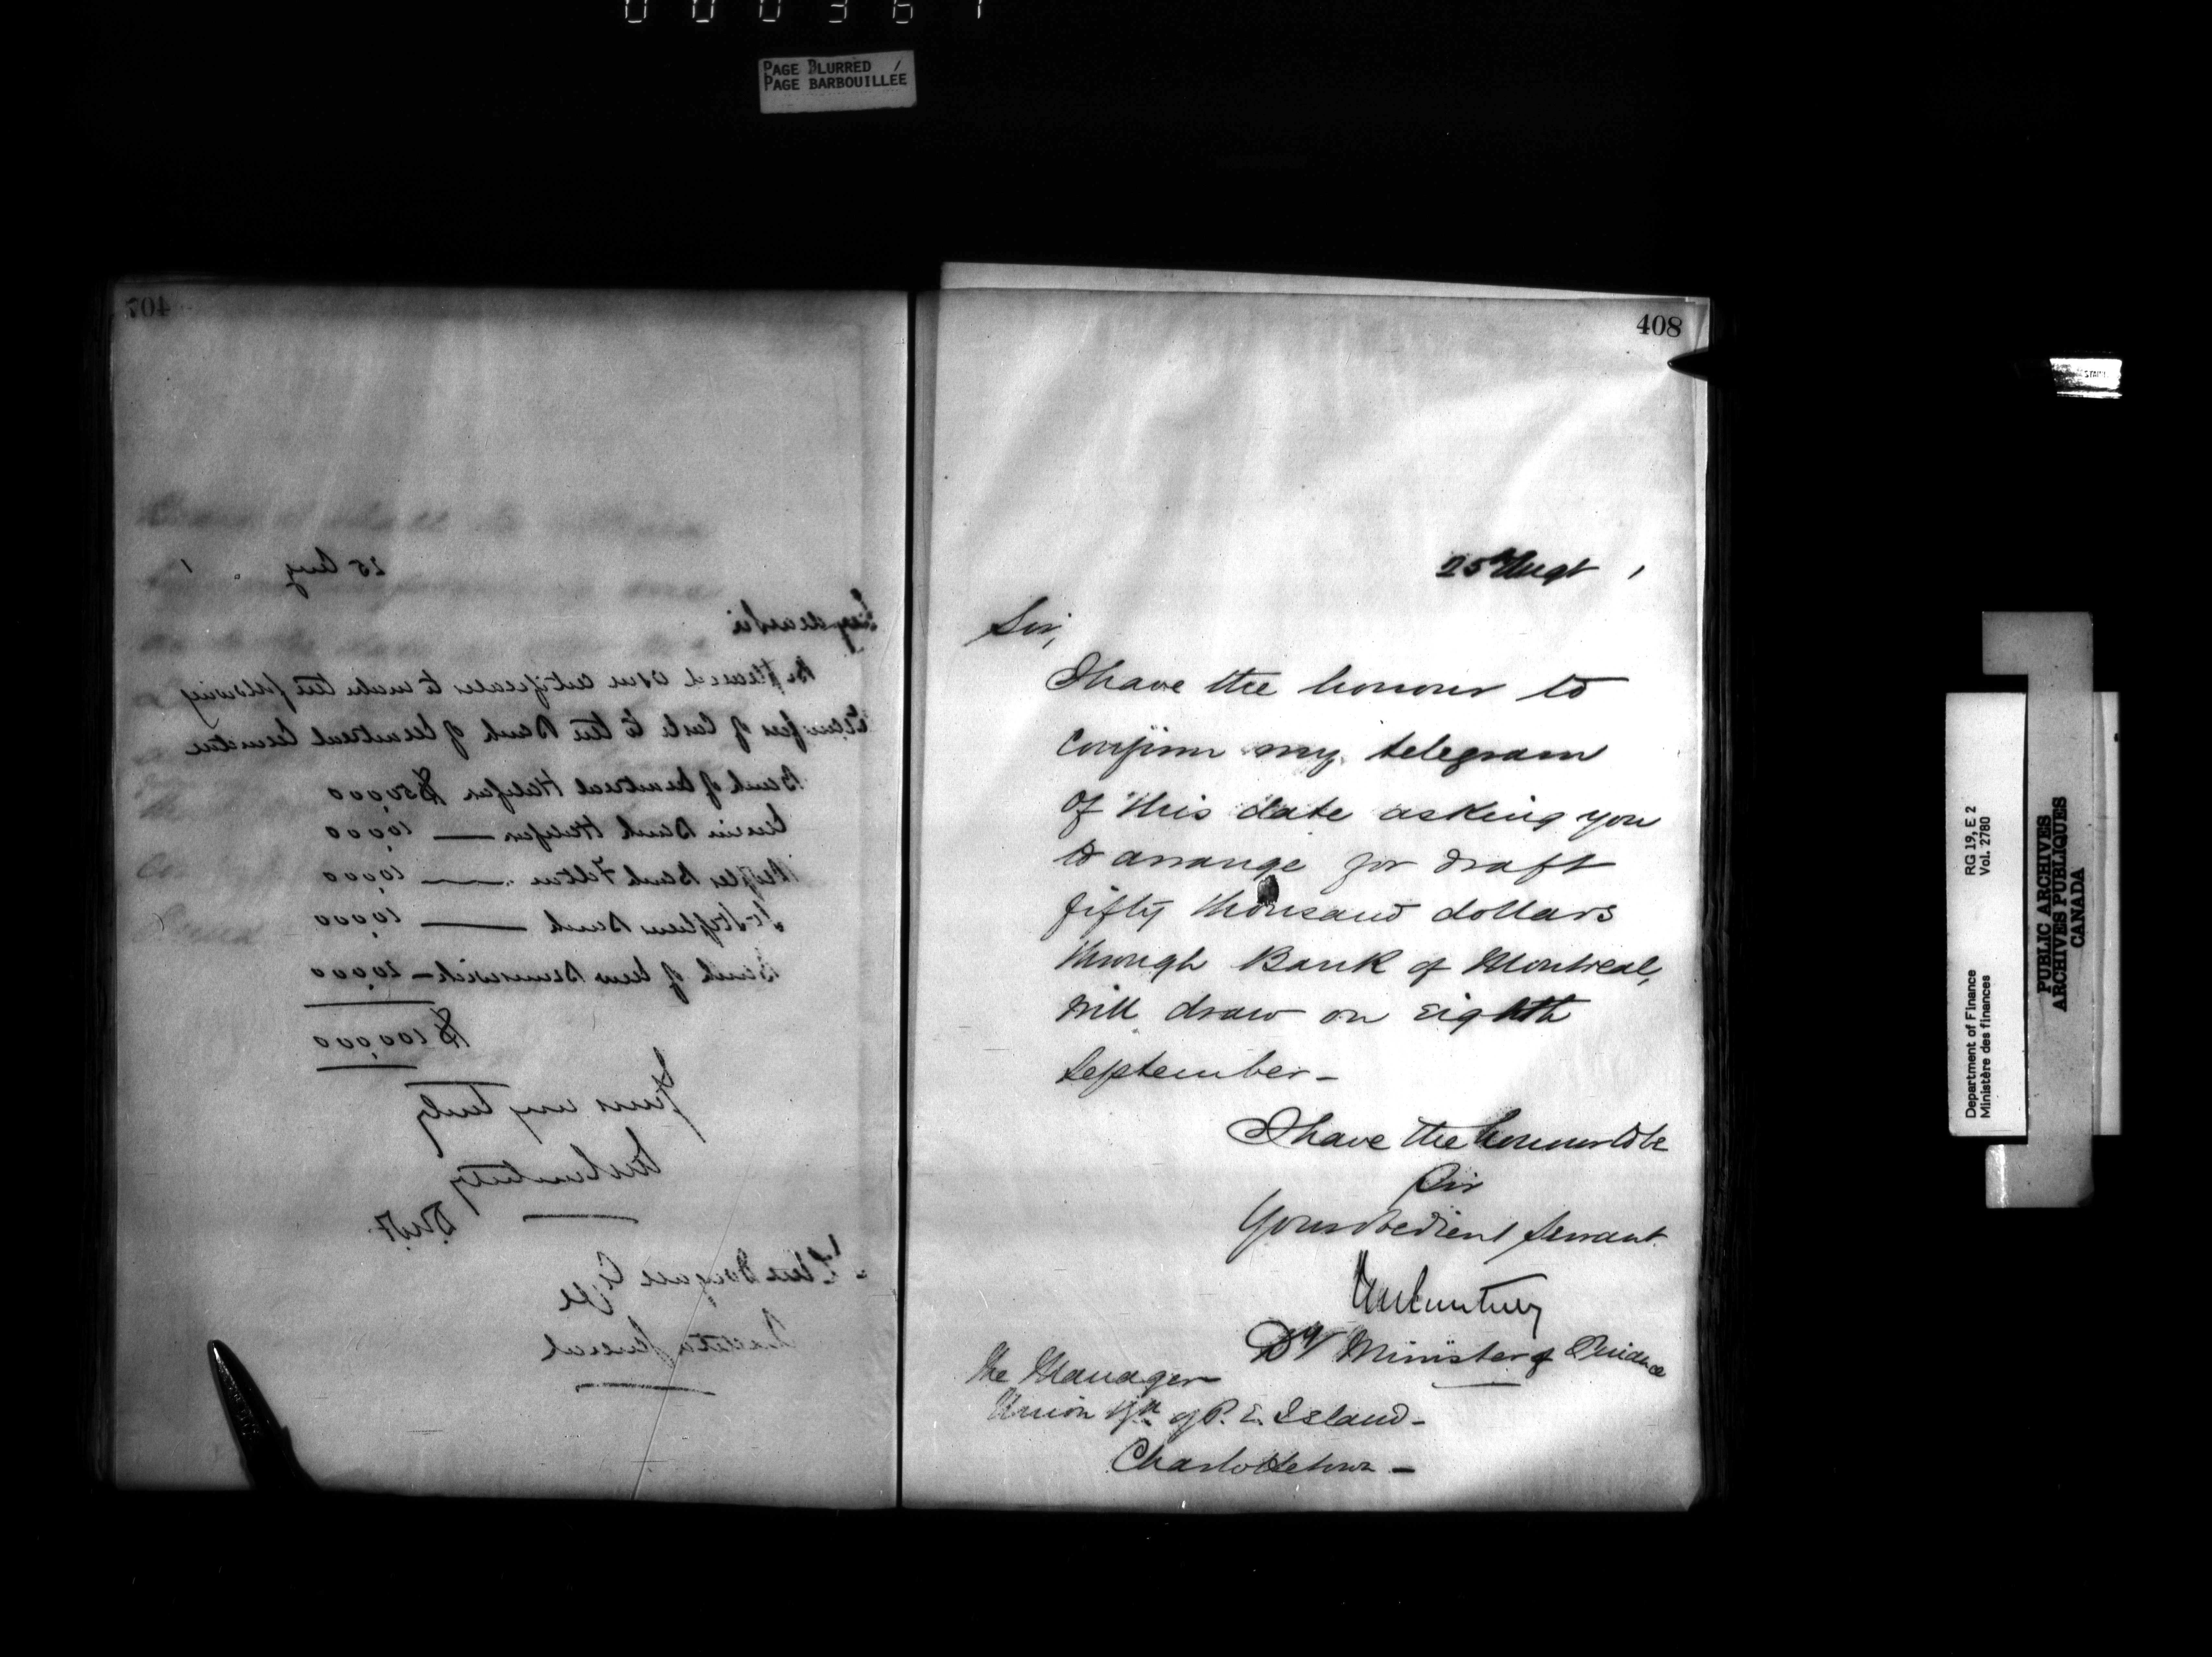 PAGE BLURRED /
PAGE BARBOUILLÉE
407
25 Aug
My dear Sir
Be pleased issue certificates to make the following
transfers of cash to the Bank of Montreal
Bank of Montreal Halifax $50,000
Union Bank Halifax — 10,000
Peoples Bank — 10,000
St Stephens Bank — 10,000
Bank of New Brunswick — 20,000
$100,000
Yours very truly
JM Courtney
D.M.F.
Auditor General
408
25th Augt
Sir,
I have the honour to
confirm my telegram
of this date asking you
to arrange for draft
fifty thousand dollars
through Bank of Montreal,
will draw on eighth
September –
I have the honour to be
Sir
Your obedient servant
JM Courtney
Dy Minister of Finance
The Manager
Union Bk of P. E. Island –
Charlottetown –
RG 19, E 2
Vol. 2780
Department of Finance
Ministère des finances
PUBLIC ARCHIVES
ARCHIVES PUBLIQUES
CANADA